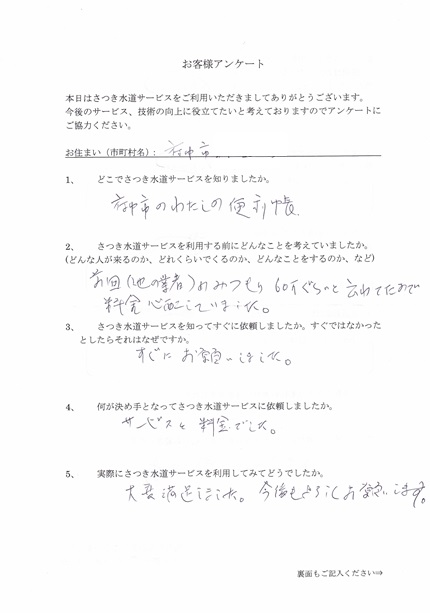 お客様アンケート
本日はさつき水道サービスをご利用いただきましてありがとうございます。
今後のサービス、技術の向上に役立てたいと考えておりますのでアンケートに
ご協力ください。
お住まい（市町村名）： 府中市
1、 どこでさつき水道サービスを知りましたか。
府中市のわたしの便利帳
2、 さつき水道サービスを利用する前にどんなことを考えていましたか。
(どんな人が来るのか、どれくらいでくるのか、どんなことをするのか、など)
前回(他の業者)のみつもり 60万ぐらいと言われてたので
料金心配していました。
3、 さつき水道サービスを知ってすぐに依頼しましたか。すぐではなかった
としたらそれはなぜですか。
すぐにお願いしました。
4、 何が決め手となってさつき水道サービスに依頼しましたか。
サービスと料金でした。
5、 実際にさつき水道サービスを利用してみてどうでしたか。
大変満足しました。今後もよろしくお願いします。
裏面もご記入ください⇒